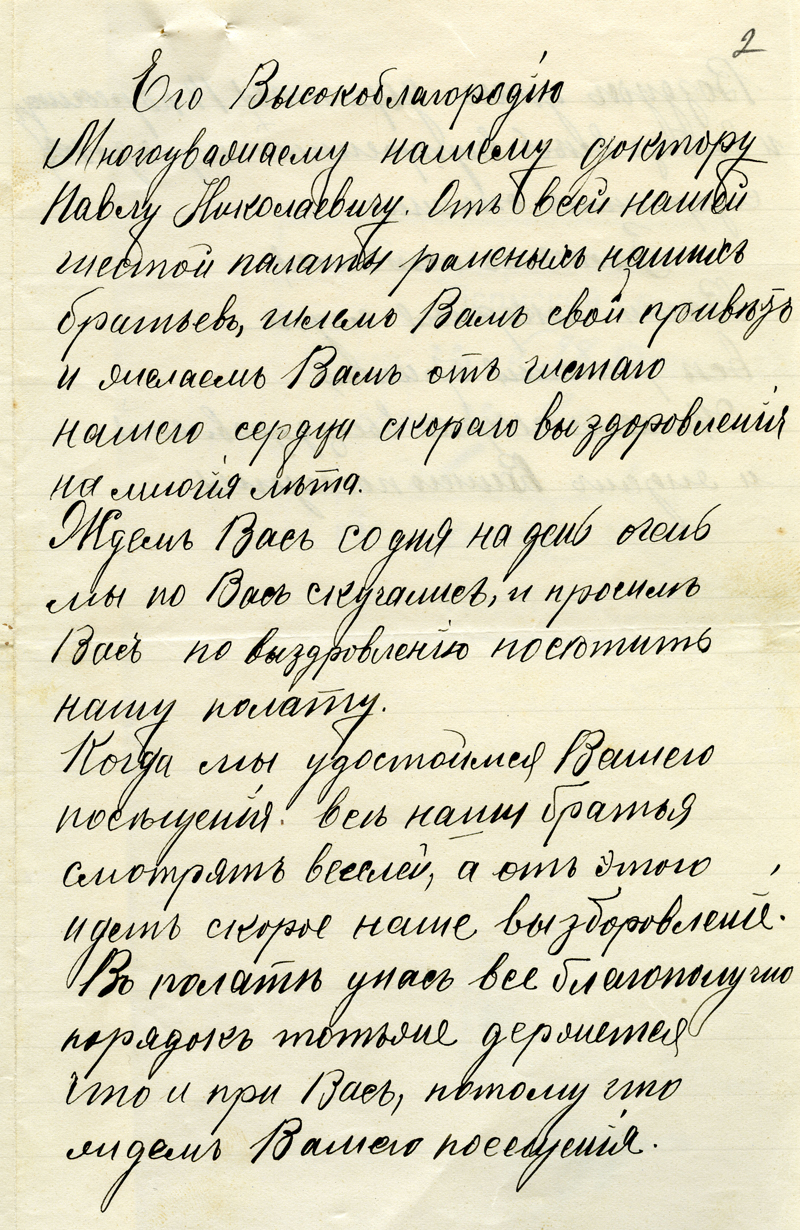 2
Его Высокоблагородію
Многоуважаему нашему доктору
Павлу Николаевичу. Отъ всей нашей
шестой палаты раненыхъ нашихъ
братьевъ, шлемъ Вамъ свой привѣтъ
и желаемъ Вамъ отъ чистаго
нашего сердца скораго выздоровленія
на многія лѣта.
Ждемъ Васъ со дня на день очень
мы по Васъ скучались, и просимъ
Васъ по выздровленію посѣтить
нашу полату.
Когда мы удостоимся Вашего
посѣщенія. всѣ наши братья
смотрятъ веселей, а отъ этого
идетъ скорое наше вызборовленіе.
Въ полатѣ унасъ все благополучно
порядокъ тотъже держится
что и при Васъ, потому что
ждемъ Вашего посещенія.